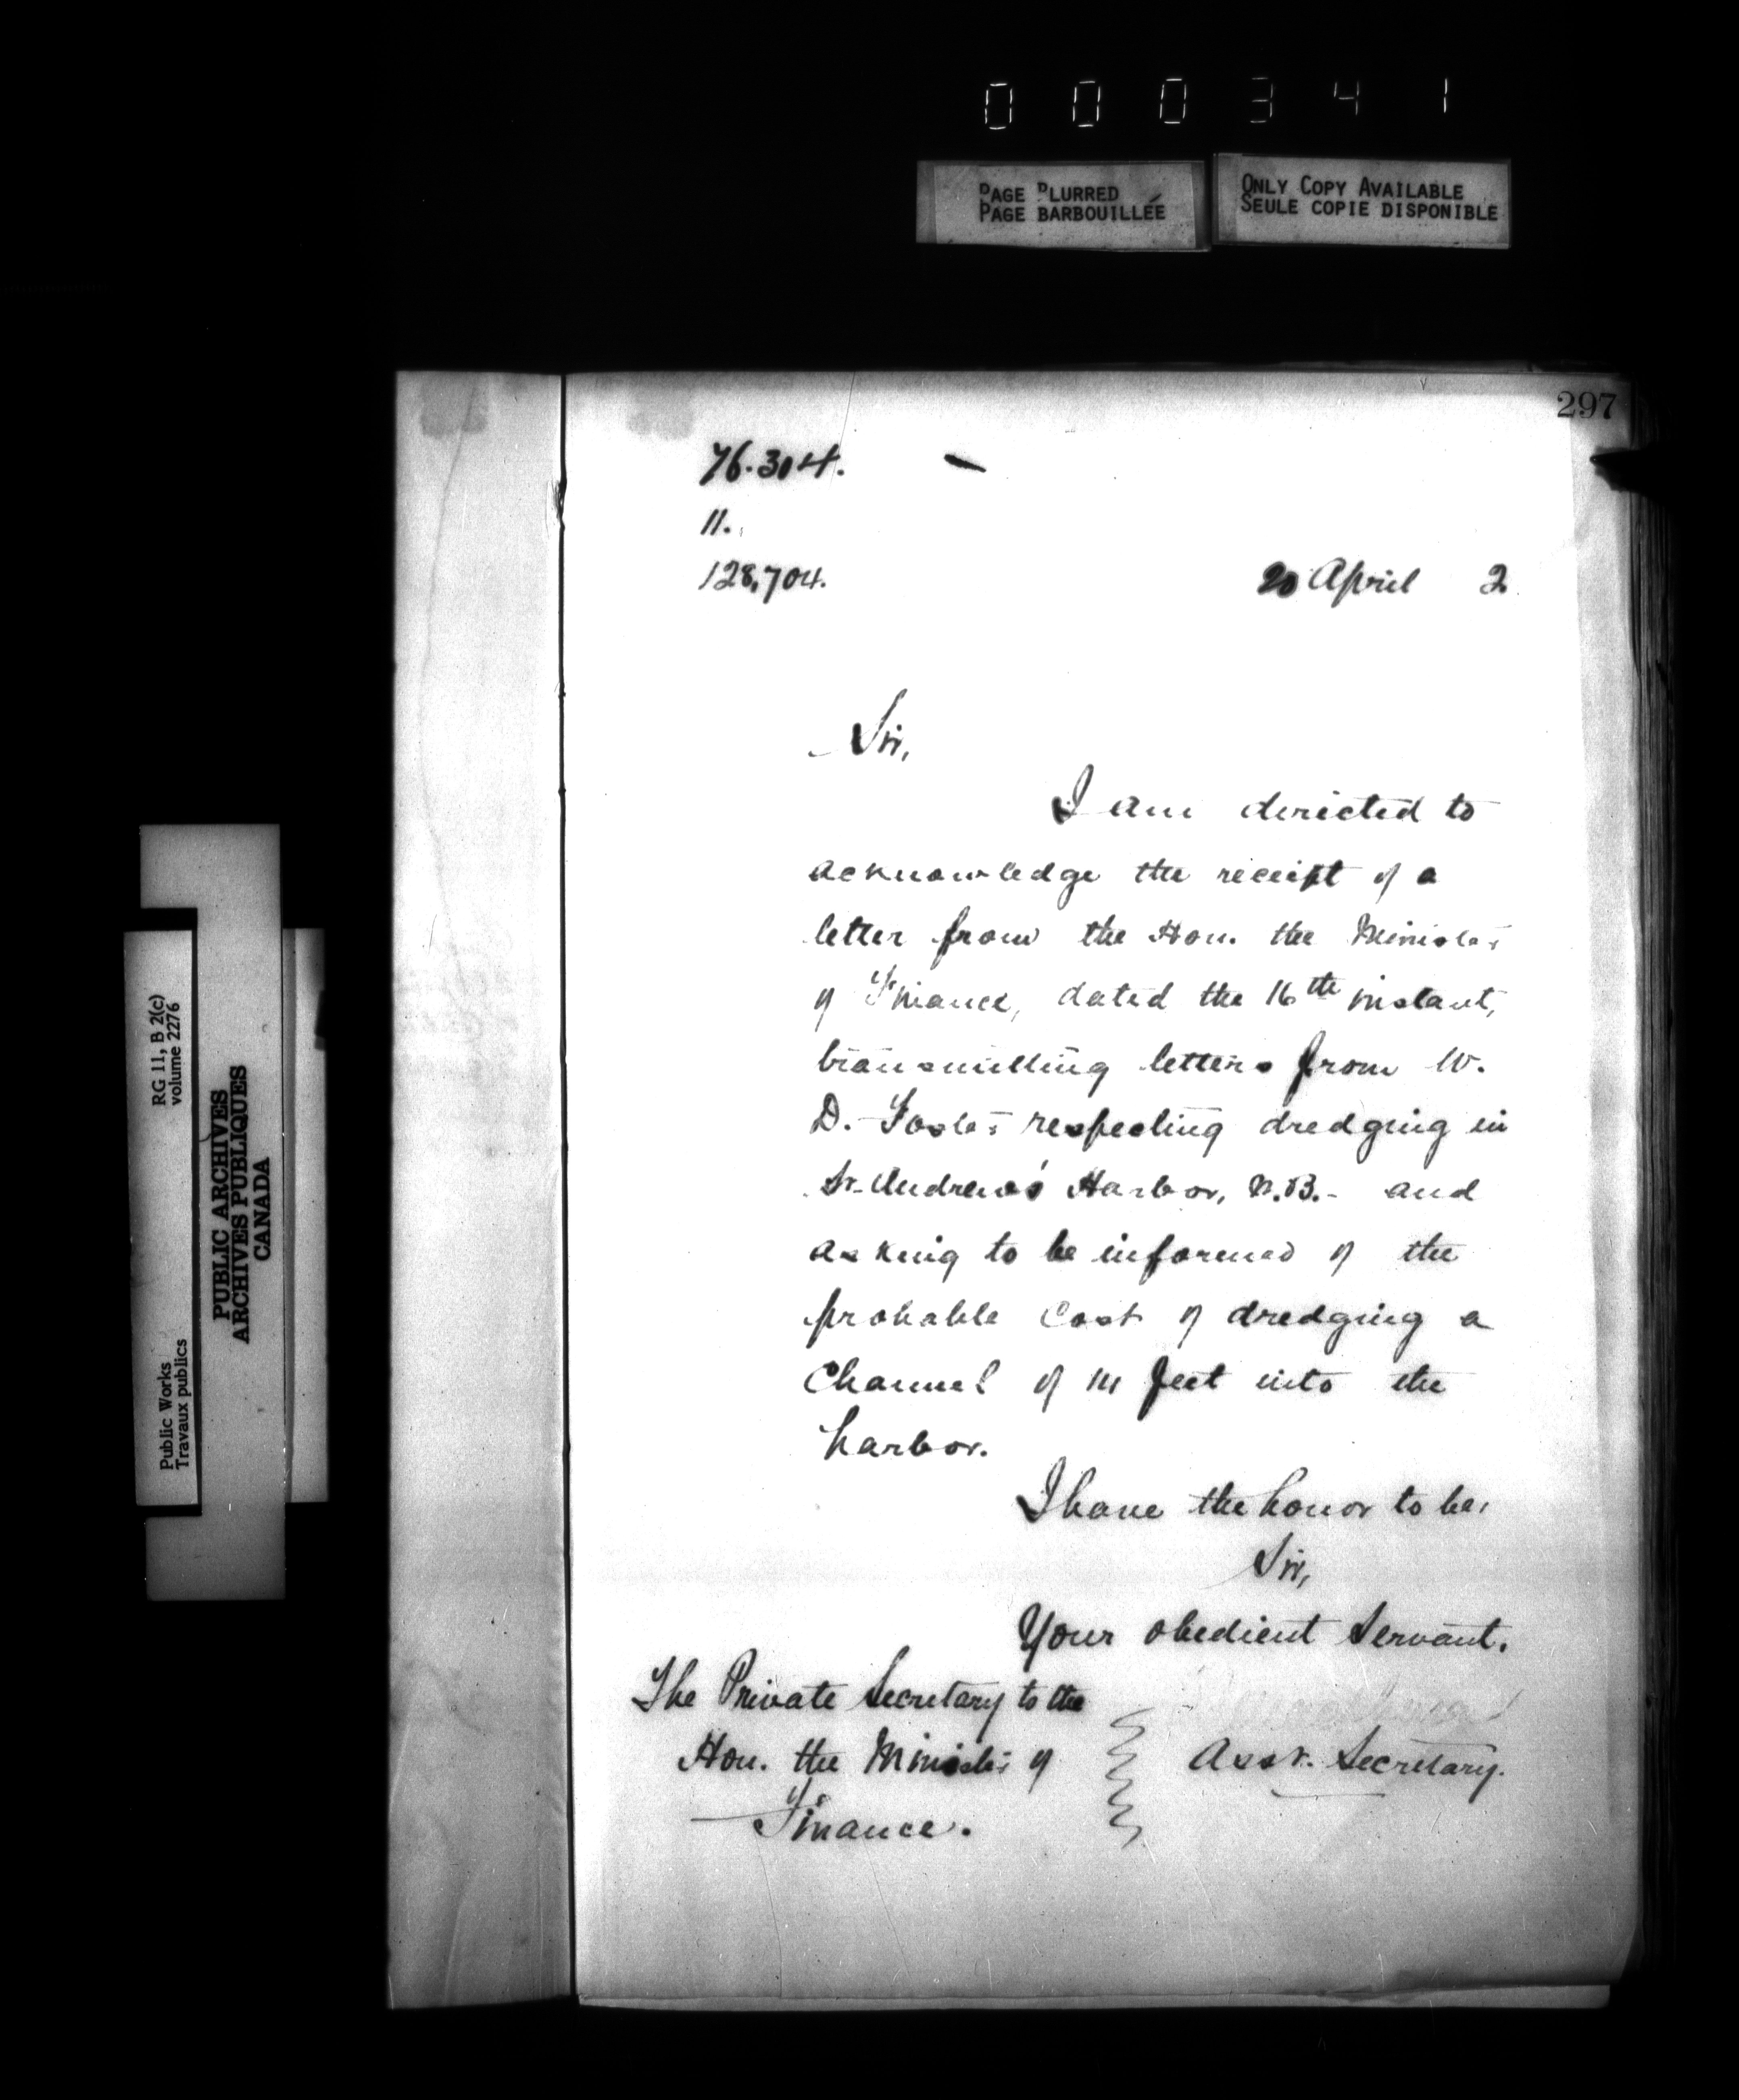 0 0 0 3 4 1
PAGE BLURRED
PAGE BARBOUILLÉE
ONLY COPY AVAILABLE
SEULE COPIE DISPONIBLE
297
76.304.
11.
128,704.
20 April 2
Sir,
I am directed to
acknowledge the receipt of a
letter from the Hon. the Minister
of Finance, dated the 16th instant,
transmitting letters from W.
D. Foster respecting dredging in
St. Andrew's Harbor, N.B. - and
asking to be informed of the
probable Cost of dredging a
Channel of 14 feet into the
harbor.
I have the honor to be,
Sir,
Your obedient Servant.
The Private Secretary to the
Hon. the Minister of
Finance.
Asst. Secretary.
RG 11, B 2(c)
volume 2276
PUBLIC ARCHIVES
ARCHIVES PUBLIQUES
CANADA
Public Works
Travaux publics